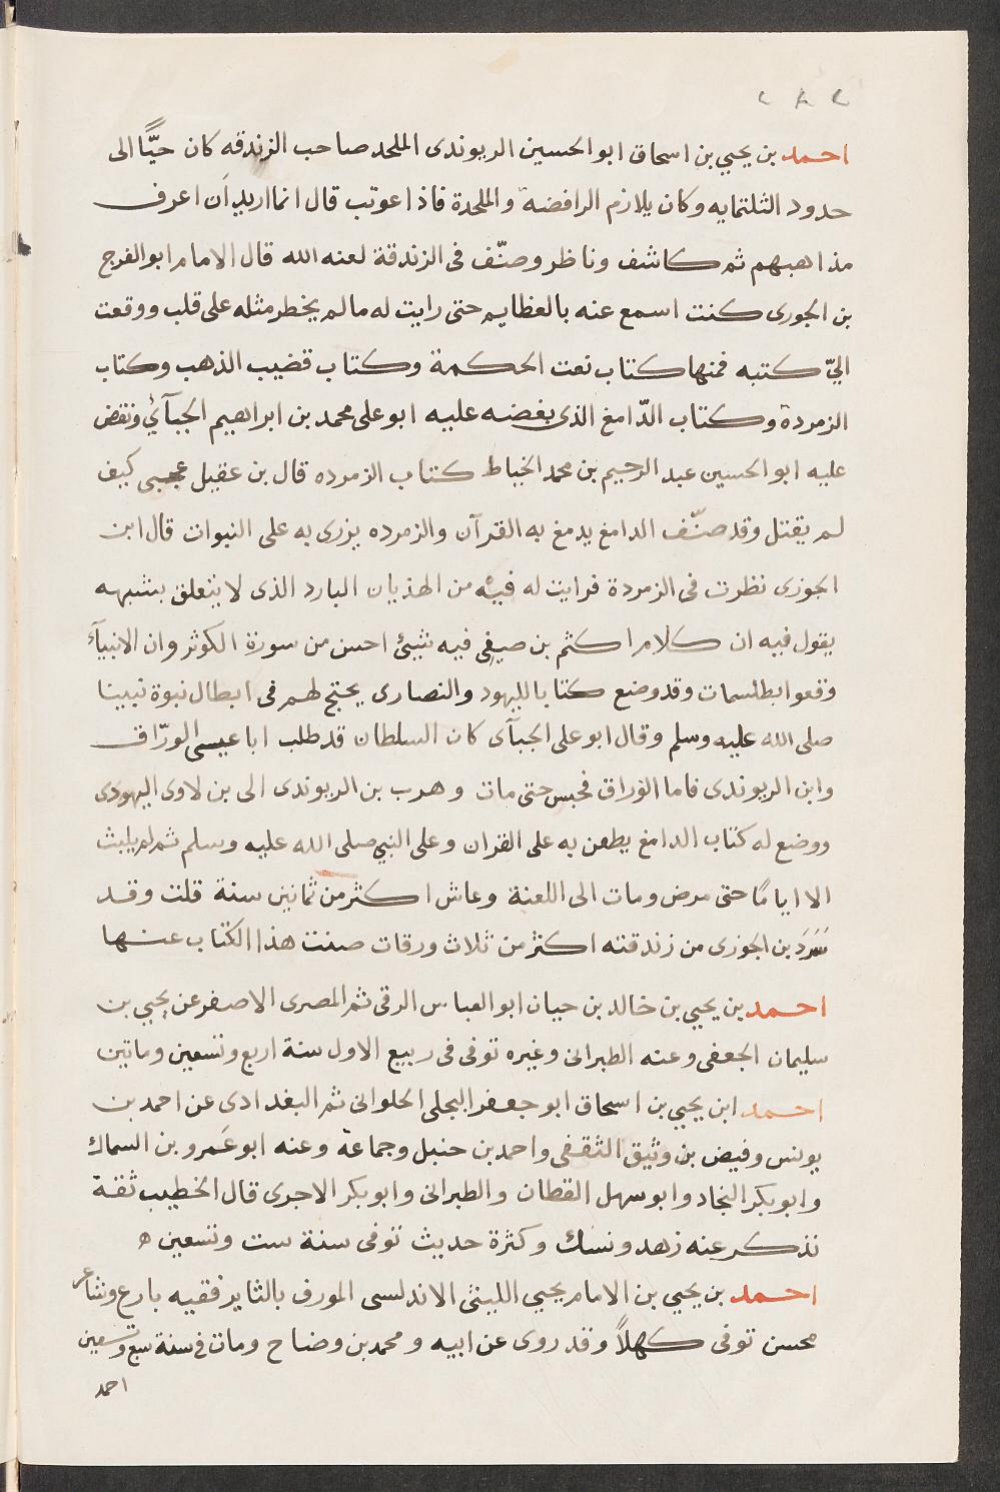 احمد بن يحيي بن اسحاق ابو الحسين الريوندى الملحد صاحب الزندقه كان حيًّا الى
حدود الثلثمايه وكان يلازم الرافضة والملحدة فاذا عوتب قال انما اريد اَن اعرف
مذاهبهم ثم كاشف وناظر وصنّف فى الزندقة لعنه الله قال الامام ابو الفرج
بن الجورى كنت اسمع عنه بالعظايم حتى رايت له مالم يخطر مثله على قلب ووقعت
اليّ كتبه فمنها كتاب نعت الحكمة وكتاب قضيب الذهب وكتاب
الزمردة وكتاب الدّامغ الذى بغضه عليه ابو على محمد بن ابراهيم الجبآئي ونقض
عليه ابو الحسين عبد الرحيم بن محمد الخياط كتاب الزمرده قال بن عقيل عجبى كيف
لم يقتل وقد صنّف الدامغ يدمغ به القرآن والزمرده يزرى به على النبوات قال ابن
الجوزى نظرت فى الزمردة فرايت له فيه من الهذيان البارد الذى لا يتعلق بشبهه
يقول فيه ان كلام اكثم بن صيفى فيه شيئ احسن من سورة الكوثر وان الانبيآء
وقعوا بطلسمات وقد وضع كتابا لليهود والنصارى يحتج لهم فى ابطال نبوة نبينا
صلى الله عليه وسلم وقال ابو على الجبآى كان السلطان قد طلب ابا عيسى الورّاق
وابن الريوندى فاما الوراق فحبس حتى مات وهرب بن الريوندى الى بن لاوى اليهودى
ووضع له كتاب الدامغ يطعن به على القران وعلى النبي صلى الله عليه وسلم ثم لم يلبث
الا اياما حتى مرض ومات الى اللعنة وعاش اكثر من ثمانين سنة قلت وقد
سَرَدَ بن الجوزى من زندقته اكثر من ثلاث ورقات صنت هذا الكتاب عنها
احمد بن يحيي بن خالد بن حيان ابو العباس الرقى ثم المصرى الاصفر عن يحيي بن
سليمان الجعفى وعنه الطبرانى وغيره توفى فى ربيع الاول سنة اربع وتسعين وماتين
احمد ابن يحيي بن اسحاق ابو جعفر البجلى الحلوانى ثم البغدادى عن احمد بن
يونس وفيض بن وثيق الثقفى واحمد بن حنبل وجماعة وعنه ابو عَمرو بن السماك
وابو بكر النجاد وابو سهل القطان والطبرانى وابو بكر الاجرى قال الخطيب ثقة
نذكر عنه زهد ونسك وكثرة حديث توفى سنة ست وتسعين ه
احمد بن يحيي بن الامام يحيي الليثى الاندلسى المورف بالثاير فقيه بارع وشاعر
محسن توفى كهلاً وقد روى عن ابيه ومحمد بن وضاح ومات فى سنة سبع وتسعين
احمد